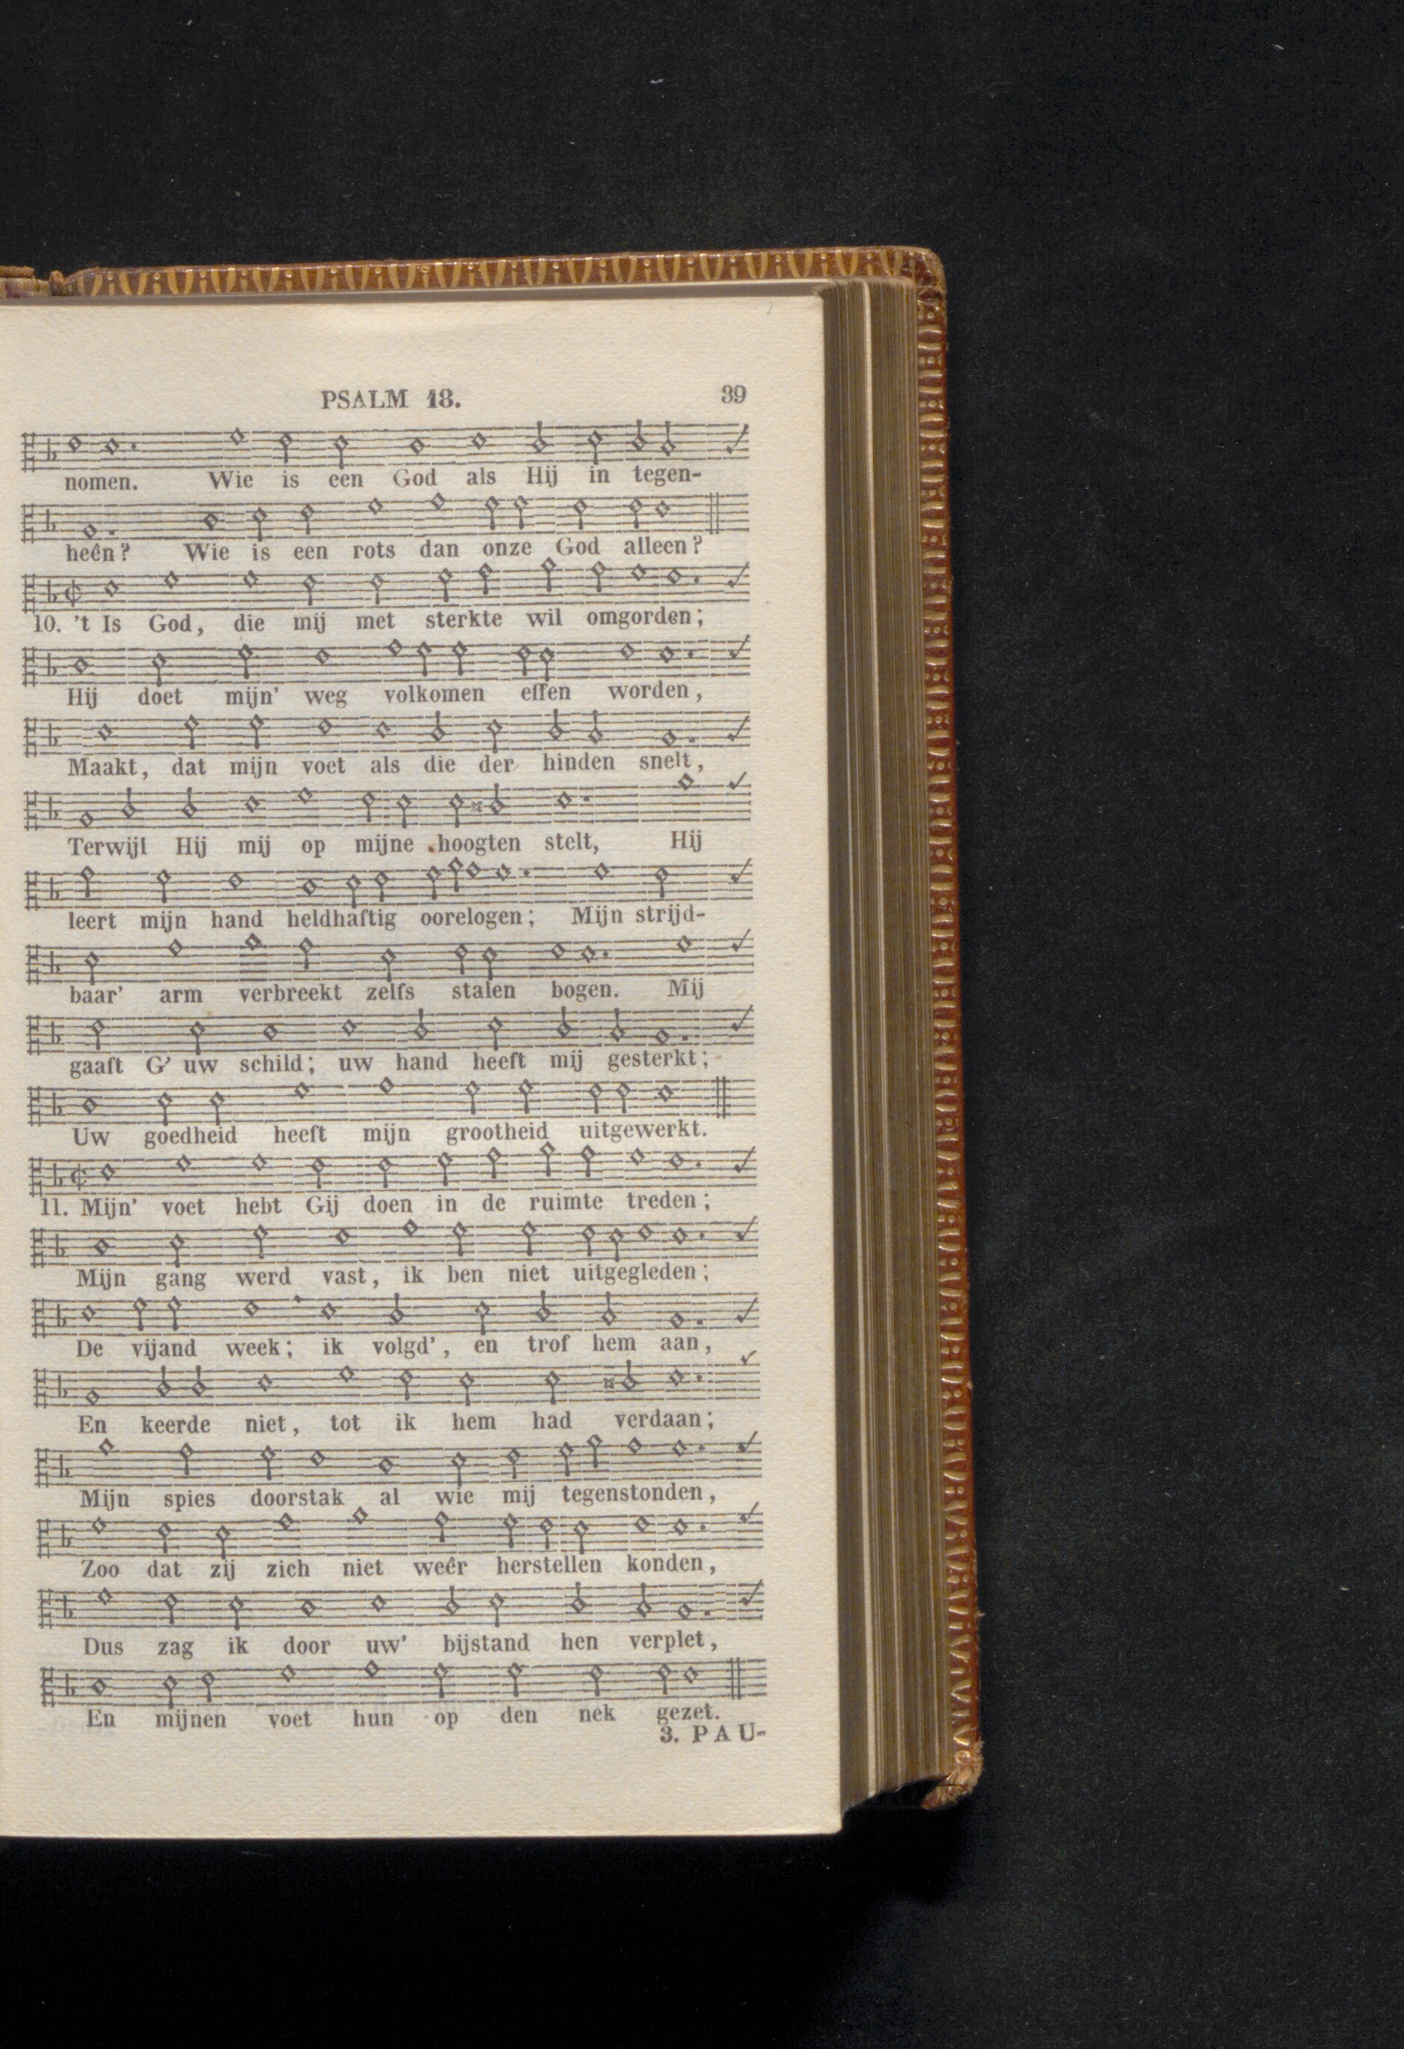 PSALM 18. 39
nomen. Wie is een God als Hij in tegen-
heên? Wie is een rots dan onze God alleen?
10. 't Is God, die mij met sterkte wil omgorden;
Hij doet mijn' weg volkomen effen worden,
Maakt, dat mijn voet als die der hinden snelt,
Terwijl Hij mij op mijne hoogten stelt, Hij
leert mijn hand heldhaftig oorelogen; Mijn strijd-
baar' arm verbreekt zelfs stalen bogen. Mij
gaaft G' uw schild; uw hand heeft mij gesterkt;
Uw goedheid heeft mijn grootheid uitgewerkt.
11. Mijn' voet hebt Gij doen in de ruimte treden;
Mijn gang werd vast, ik ben niet uitgegleden;
De vijand week; ik volgd', en trof hem aan,
En keerde niet, tot ik hem had verdaan;
Mijn spies doorstak al wie mij tegenstonden,
Zoo dat zij zich niet weêr herstellen konden,
Dus zag ik door uw' bijstand hen verplet,
En mijnen voet hun op den nek gezet.
3. PAU-